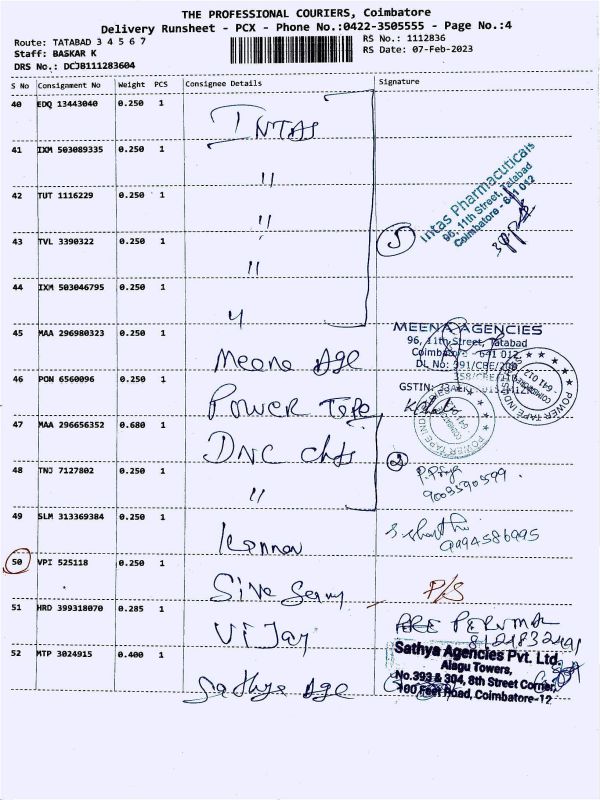 THE PROFESSIONAL COURIERS, Coimbatore
Delivery Runsheet - PCX - Phone No.:0422-3505555 - Page No.:4
Route: TATABAD 3 4 5 6 7
Staff: BASKAR K
DRS No.: DCJB111283604
RS No.: 1112836
RS Date: 07-Feb-2023
S No Consignment No Weight PCS Consignee Details Signature
40 EDQ 13443040 0.250 1
INTAS
41 IXM 503089335 0.250 1
"
42 TUT 1116229 0.250 1
"
43 TVL 3390322 0.250 1
"
44 IXM 503046795 0.250 1
"
5
Intas Pharmaceuticals
96, 11th Street, Tatabad
Coimbatore - 641 012
45 MAA 296980323 0.250 1
Meena Age
MEENA AGENCIES
96, 11th Street, Tatabad
Coimbatore - 641 012
46 PON 6560096 0.250 1
Power Tape
POWER TAPE
47 MAA 296656352 0.680 1
DNC chts
48 TNJ 7127802 0.250 1
"
2
P. Priya
49 SLM 313369384 0.250 1
Kannan
9994586995
50 VPI 525118 0.250 1
Siva Samy
P/S
51 HRD 399318070 0.285 1
Vijay
PERUMAL
52 MTP 3024915 0.400 1
Sathya Age
Sathya Agencies Pvt. Ltd.
Alagu Towers,
No.393 & 304, 8th Street Corner,
100 Feet Road, Coimbatore-12